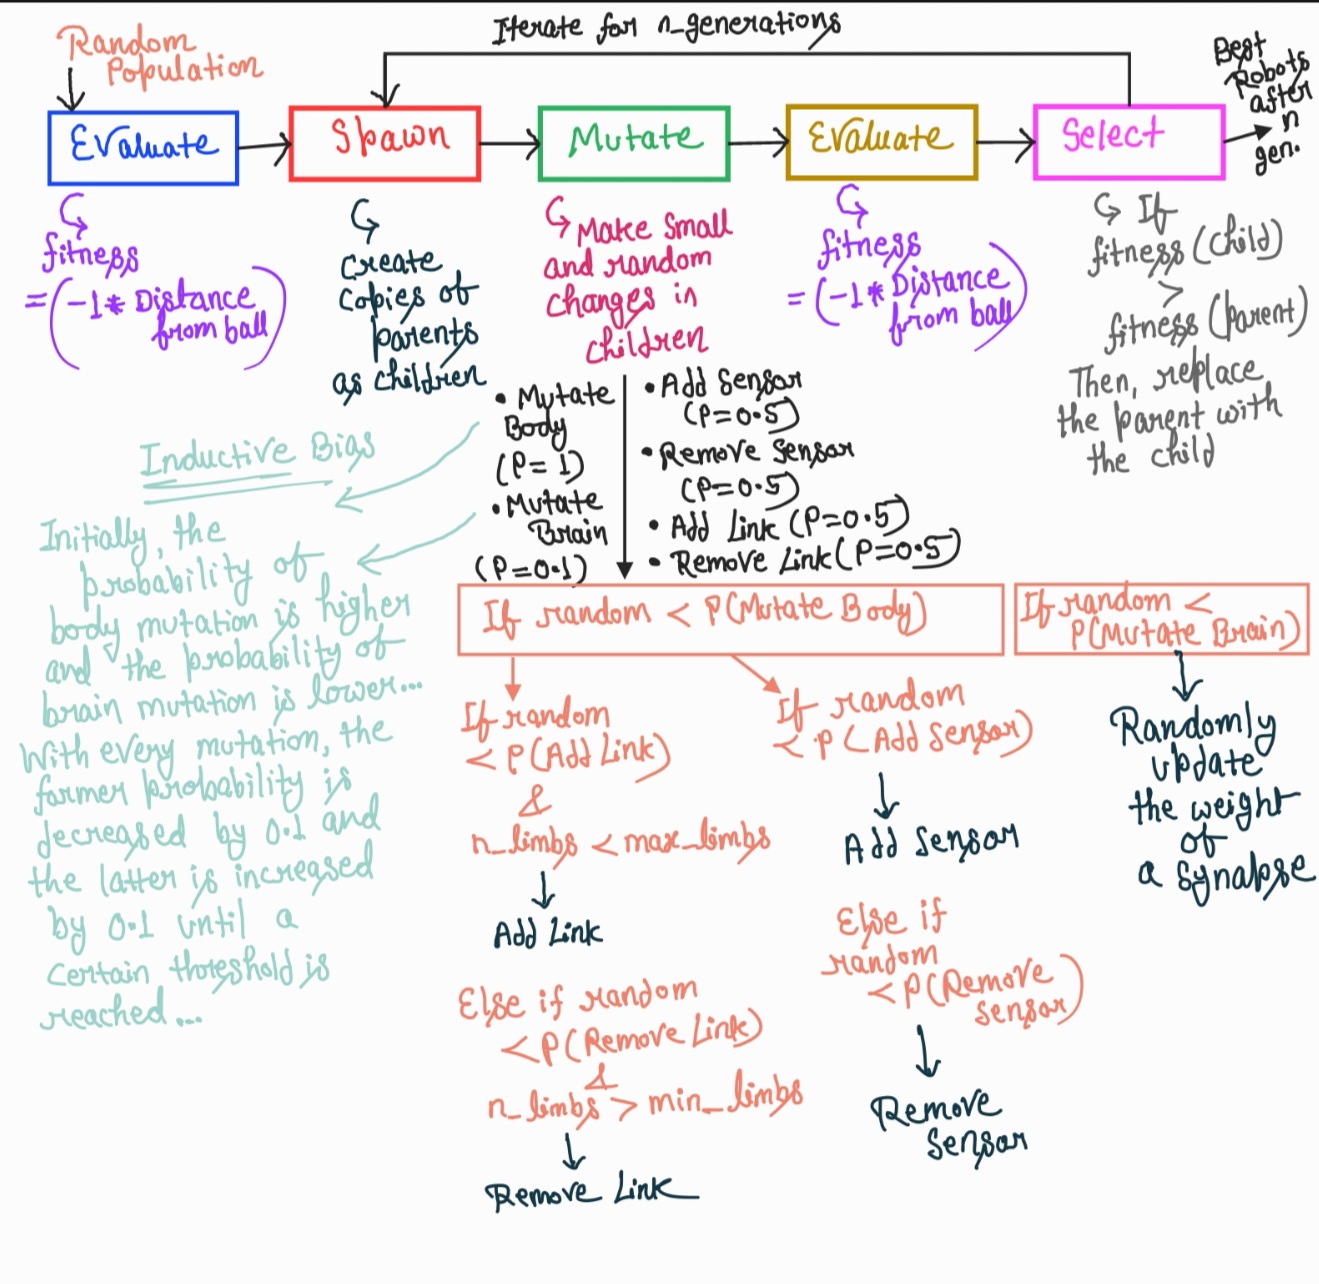 Iterate for n_generations
Random
Population
Best
Robots
after
n
gen.
Evaluate
Spawn
Mutate
Evaluate
Select
fitness
= (-1 * Distance
from ball)
Create
Copies of
parents
as children
Make small
and random
changes in
children
fitness
= (-1 * Distance
from ball)
If
fitness (child)
>
fitness (parent)
Then, replace
the parent with
the child
• Mutate
Body
(P = 1)
• Mutate
Brain
(P=0.1)
• Add Sensor
(P=0.5)
• Remove Sensor
(P=0.5)
• Add Link (P=0.5)
• Remove Link (P=0.5)
Inductive Bias
Initially, the
probability of
body mutation is higher
and the probability of
brain mutation is lower...
With every mutation, the
former probability is
decreased by 0.1 and
the latter is increased
by 0.1 until a
certain threshold is
reached...
If random < P(Mutate Body)
If random <
P(Mutate Brain)
If random
< P(Add Link)
&
n_limbs < max_limbs
Add Link
Else if random
< P(Remove Link)
&
n_limbs > min_limbs
Remove Link
If random
< P(Add Sensor)
Add Sensor
Else if
random
< P(Remove
Sensor)
Remove
Sensor
Randomly
update
the weight
of
a synapse